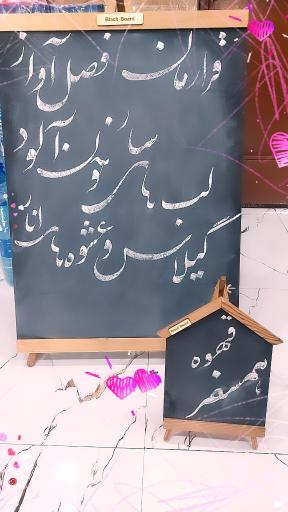 Black Board
قرارمان فصل آواز
ساز
لب های خون آلود
گیلاس و عشوه های انار
Black Board
قهوه
همسفر